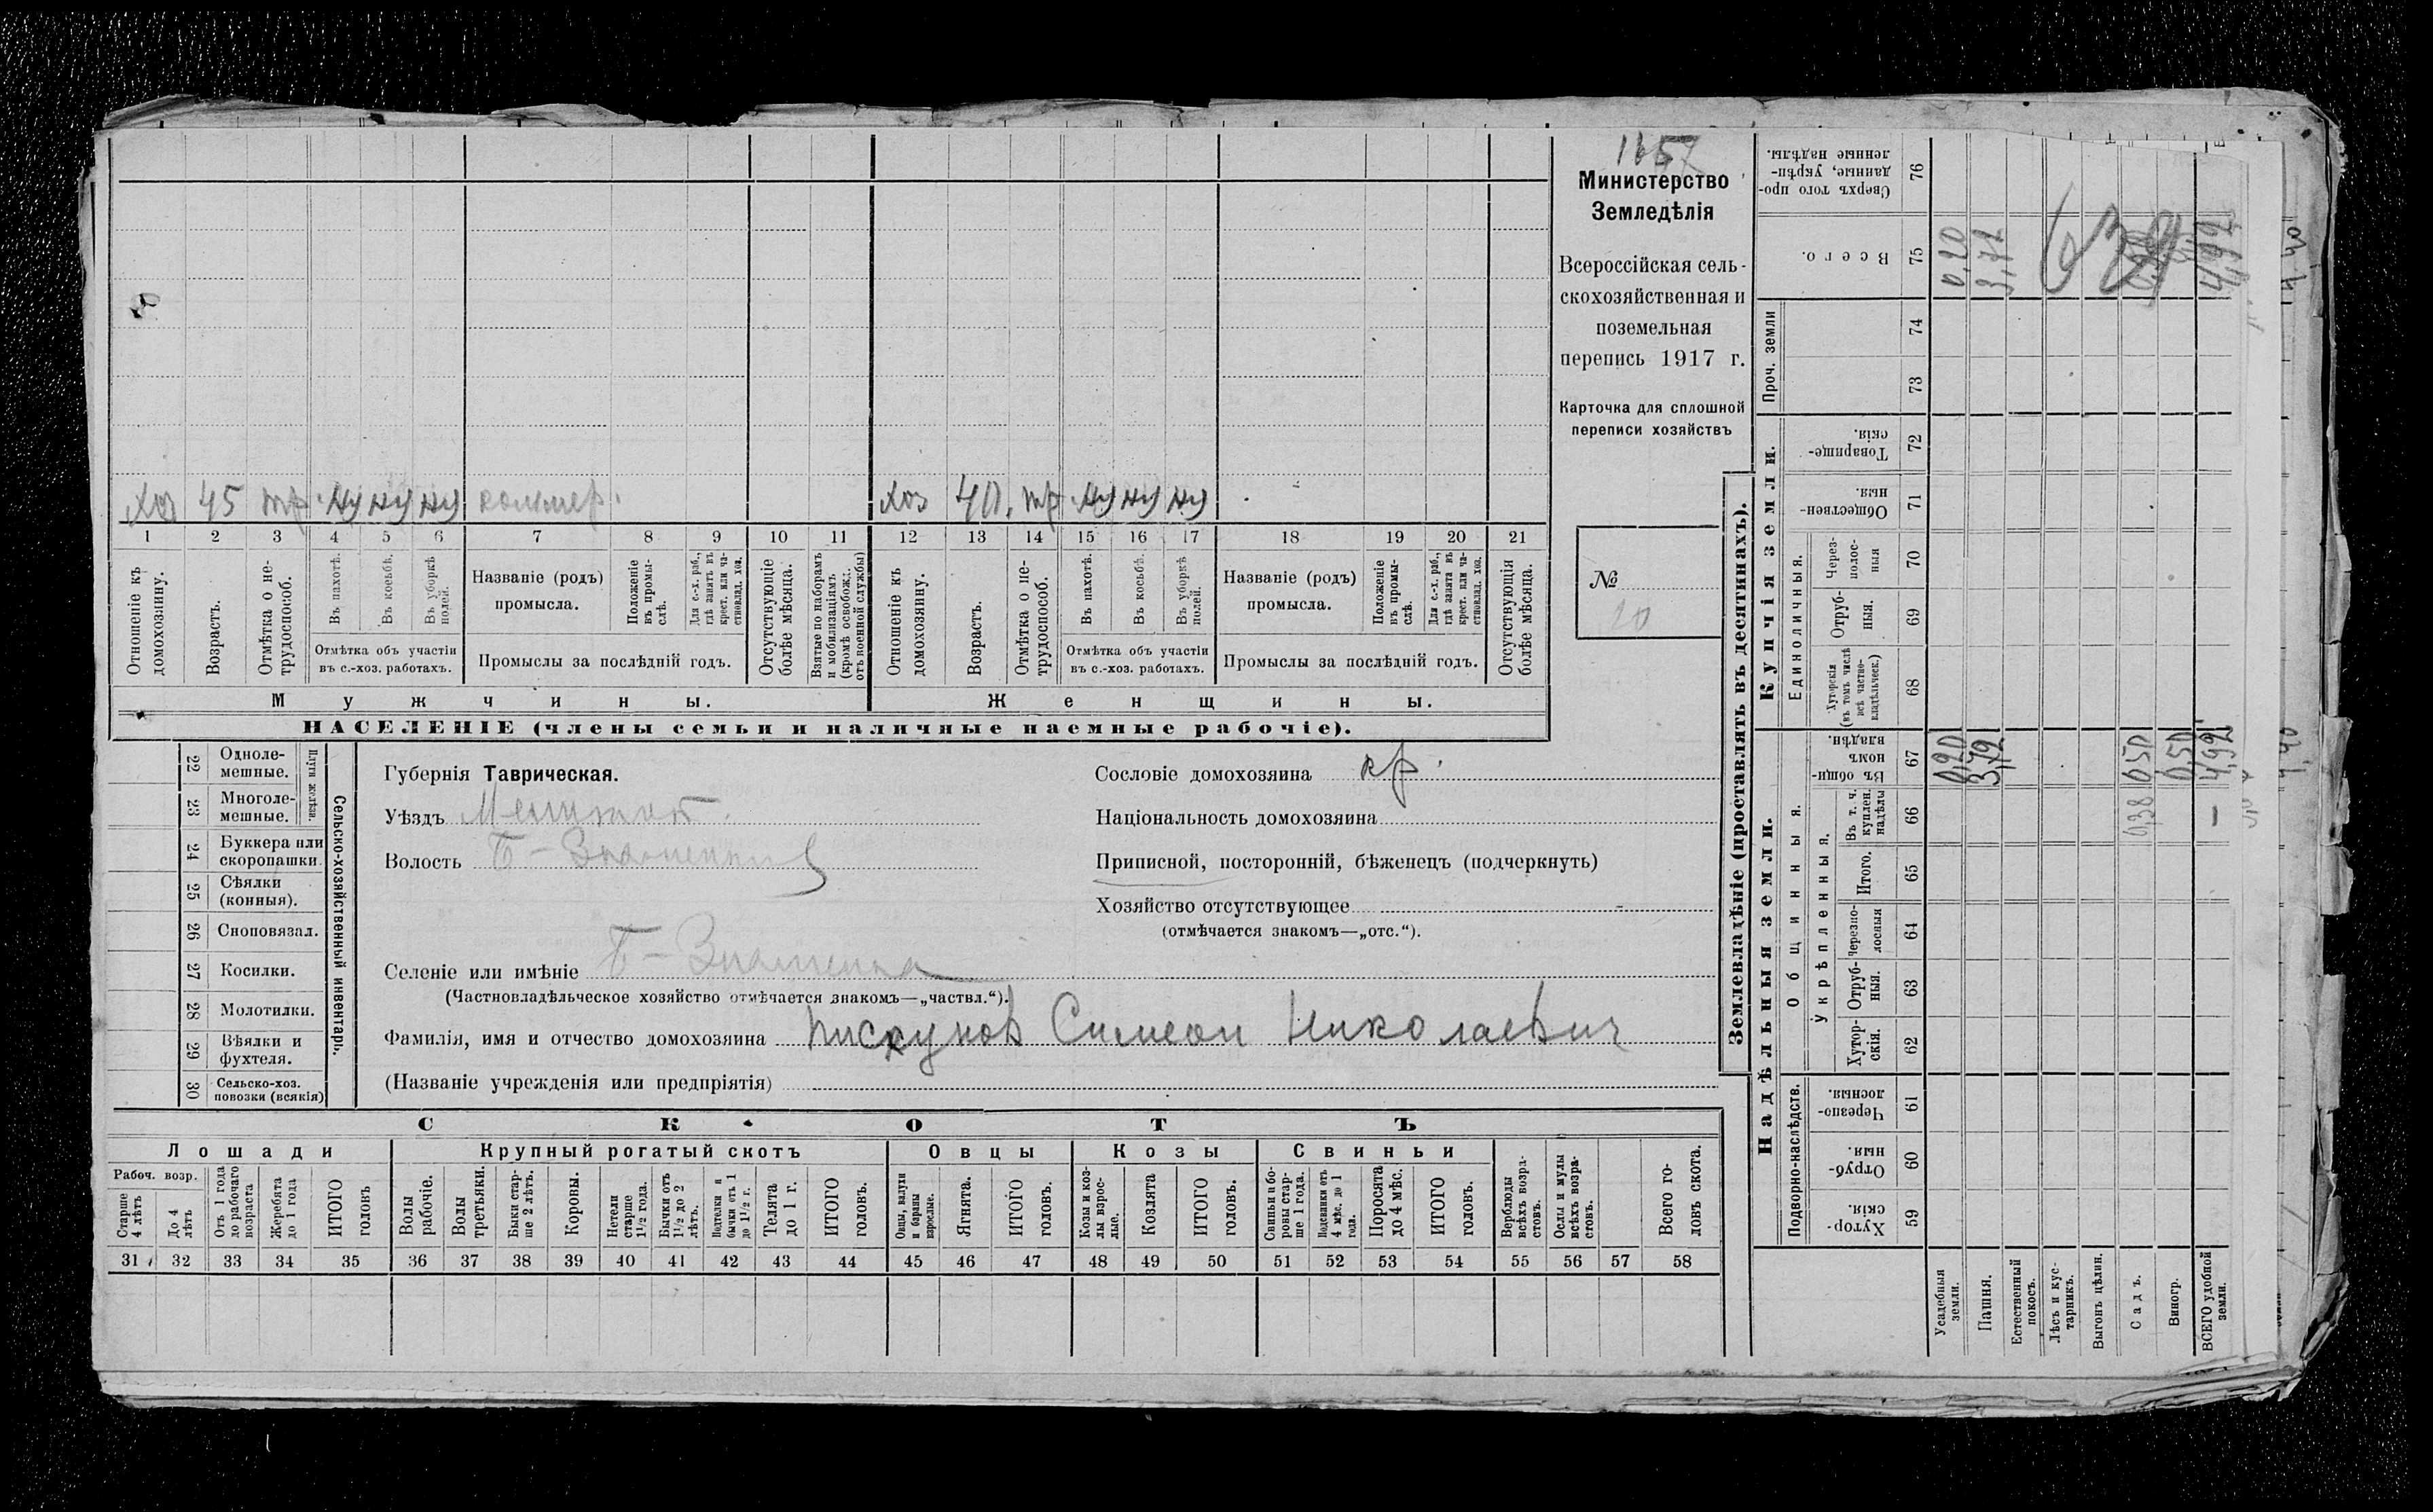 Министерство
Земледѣлія
Всероссійская сель-
скохозяйственная и
поземельная
перепись 1917 г.
Карточка для сплошной
переписи хозяйствъ
№
20
хоз 45 тр. коммер. хоз 40. тр.
1 2 3 4 5 6 7 8 9 10 11 12 13 14 15 16 17 18 19 20 21
Отношеніе къ домохозяину.
Возрастъ.
Отмѣтка о не-трудоспособ.
Въ пахотѣ.
Въ косьбѣ.
Въ уборкѣ полей.
Отмѣтка объ участіи
въ с.-хоз. работахъ.
Названіе (родъ)
промысла.
Положеніе въ промы-слѣ.
Для с.-х. раб., гдѣ занятъ въ крест. или ча-стновлад. хоз.
Промыслы за послѣдній годъ.
Отсутствующіе болѣе мѣсяца.
Взятые по наборамъ и мобилизаціямъ (кромѣ освобожд. отъ военной службы)
Отношеніе къ домохозяину.
Возрастъ.
Отмѣтка о не-трудоспособ.
Въ пахотѣ.
Въ косьбѣ.
Въ уборкѣ полей.
Отмѣтка объ участіи
въ с.-хоз. работахъ.
Названіе (родъ)
промысла.
Положеніе въ промы-слѣ.
Для с.-х. раб., гдѣ занята въ крест. или ча-стновлад. хоз.
Промыслы за послѣдній годъ.
Отсутствующія болѣе мѣсяца.
Мужчины.
Женщины.
НАСЕЛЕНІЕ (члены семьи и наличные наемные рабочіе).
Сельско-хозяйственный инвентарь.
Плуги желѣзн.
22 Одноле-мешные.
23 Многоле-мешные.
24 Буккера или скоропашки.
25 Сѣялки (конныя).
26 Сноповязал.
27 Косилки.
28 Молотилки.
29 Вѣялки и фухтеля.
30 Сельско-хоз. повозки (всякія)
Губернія Таврическая.
Уѣздъ Мелитоп.
Волость Б-Знаменка
Селеніе или имѣніе Б-Знаменка
(Частновладѣльческое хозяйство отмѣчается знакомъ—„частвл.“).
Фамилія, имя и отчество домохозяина Пискунов Симеон Николаевич
(Названіе учрежденія или предпріятія)
Сословіе домохозяина кр.
Національность домохозяина
Приписной, посторонній, бѣженецъ (подчеркнуть)
Хозяйство отсутствующее
(отмѣчается знакомъ—„отс.“).
СКОТЪ
Лошади
Крупный рогатый скотъ
Овцы
Козы
Свиньи
Рабоч. возр.
Старше 4 лѣтъ
До 4 лѣтъ
Отъ 1 года до рабочаго возраста
Жеребята до 1 года
ИТОГО головъ
Волы рабочіе.
Волы третьяки.
Быки стар-ше 2 лѣтъ.
Коровы.
Нетели старше 1½ года.
Бычки отъ 1½ до 2 лѣтъ.
Подтелки и бычки отъ 1 до 1½ г.
Телята до 1 г.
ИТОГО головъ.
Овцы, валухи и бараны взрослые.
Ягнята.
ИТОГО головъ.
Козы и коз-лы взрос-лые.
Козлята
ИТОГО головъ.
Свиньи и бо-ровы стар-ше 1 года.
Подсвинки отъ 4 мѣс. до 1 года.
Поросята до 4 мѣс.
ИТОГО головъ.
Верблюды всѣхъ возра-стовъ.
Ослы и мулы всѣхъ возра-стовъ.
Всего го-ловъ скота.
31 32 33 34 35 36 37 38 39 40 41 42 43 44 45 46 47 48 49 50 51 52 53 54 55 56 57 58
Землевладѣніе (проставлять въ десятинахъ).
Надѣльныя земли.
Купчія земли.
Проч. земли
Подворно-наслѣдств.
Общинныя.
Укрѣпленныя.
Единоличныя.
59 Хутор-скія.
60 Отруб-ныя.
61 Черезпо-лосныя.
62 Хутор-скія.
63 Отруб-ныя.
64 Черезпо-лосныя
65 Итого.
66 Въ т. ч. куплен. надѣлы
67 Въ общи-номъ владѣн.
68 Хуторскія (въ томъ числѣ всѣ частно-владѣльческ.)
69 Отруб-ныя.
70 Через-полос-ныя
71 Обществен-ныя.
72 Товарище-скія.
73
74
75 Всего.
76 Сверхъ того про-данные, укрѣп-ленные надѣлы.
Усадебныя земли. 0,20 0,20
Пашня. 3,72 3,72
Естественный покосъ.
Лѣсъ и кус-тарникъ.
Выгонъ цѣлин.
Садъ. 0,38 0,50
Виногр. 0,50
ВСЕГО удобной земли. 4,92 4,92